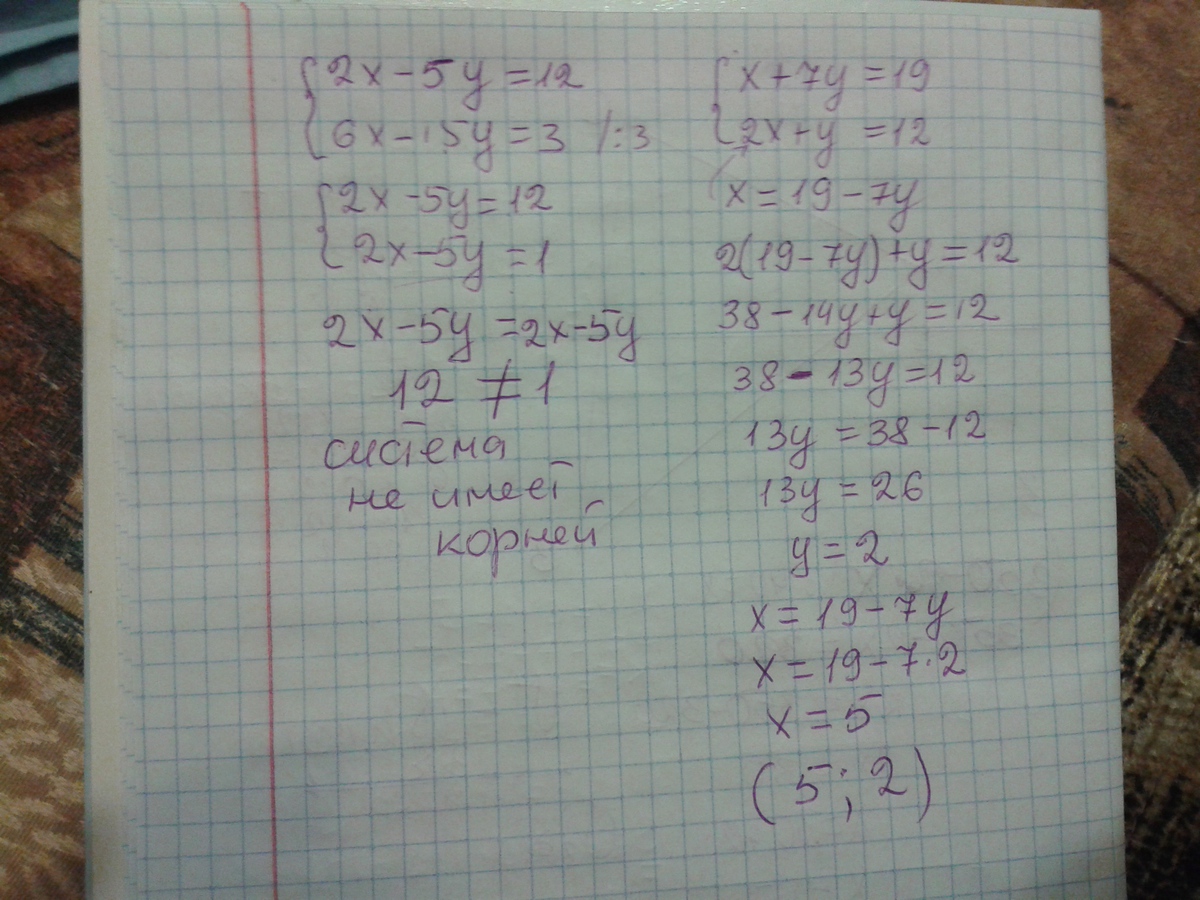 2x-5y=12
6x-15y=3 /:3
2x-5y=12
2x-5y=1
2x-5y=2x-5y
12≠1
система
не имеет
корней
x+7y=19
2x+y=12
x=19-7y
2(19-7y)+y=12
38-14y+y=12
38-13y=12
13y=38-12
13y=26
y=2
x=19-7y
x=19-7·2
x=5
(5;2)